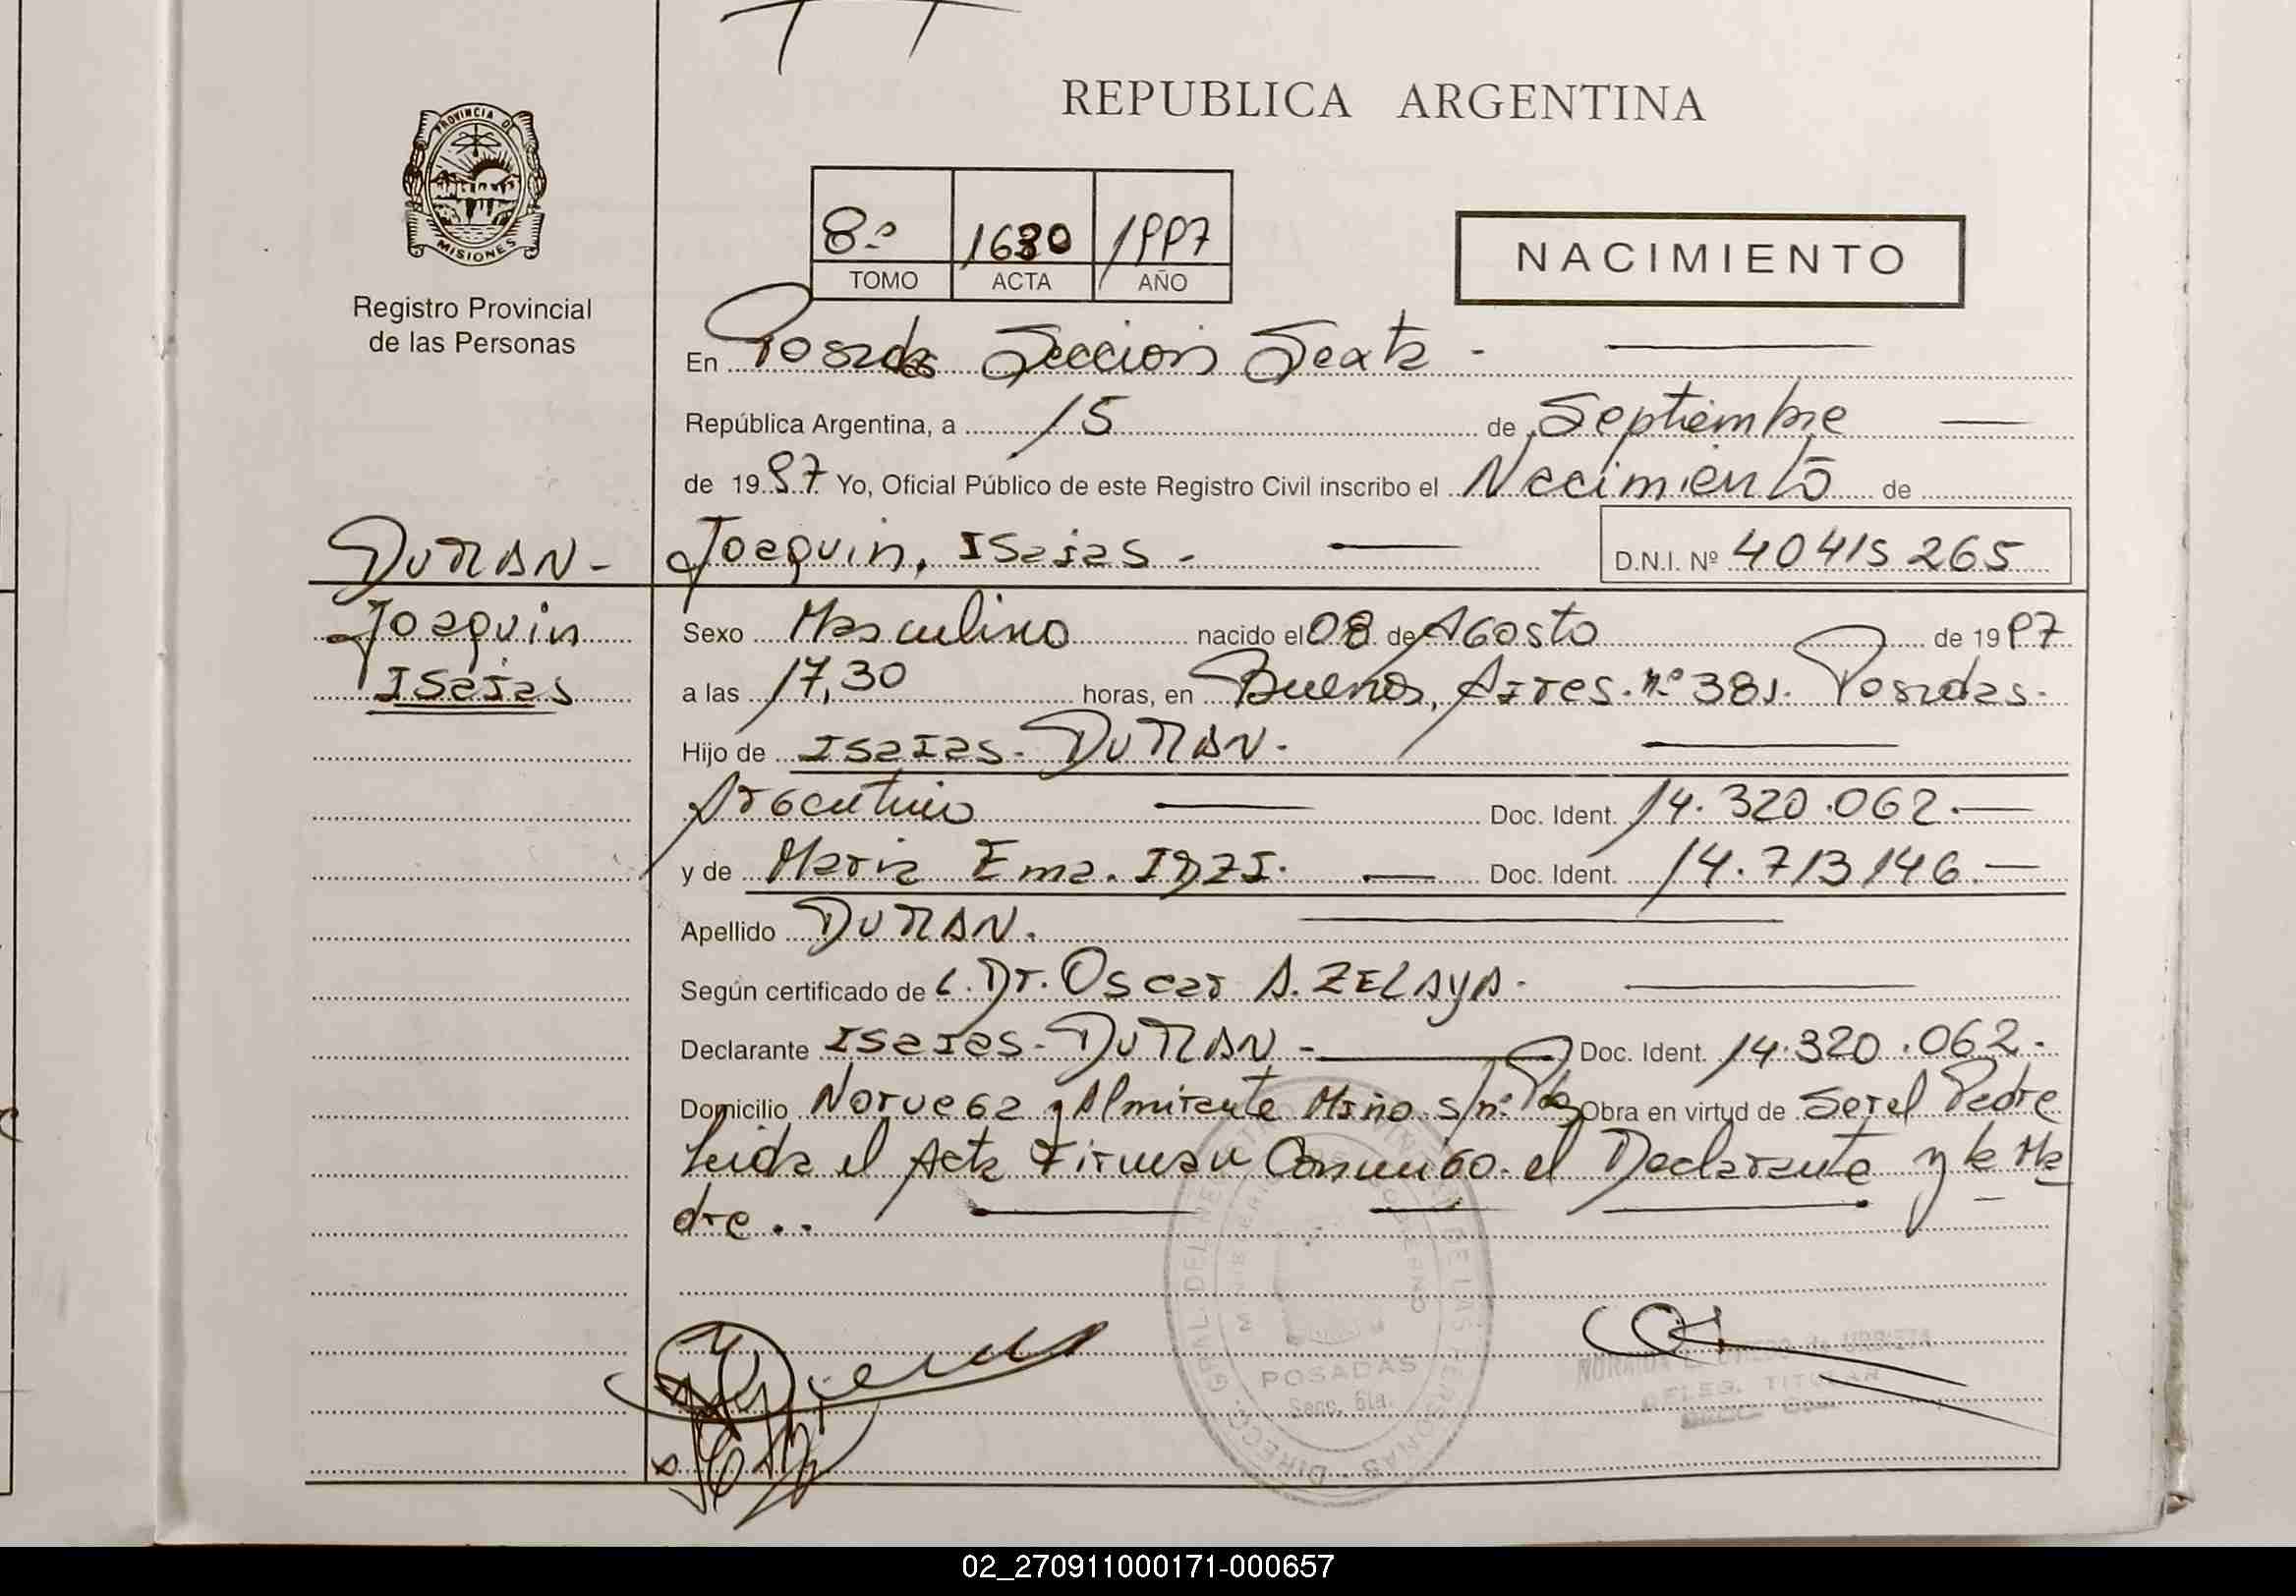 REPUBLICA ARGENTINA
PROVINCIA DE
MISIONES
Registro Provincial
de las Personas
8º 1630 1997
TOMO ACTA AÑO
NACIMIENTO
En Posadas Seccion Sexta -
República Argentina, a 15 de Septiembre
de 1997 Yo, Oficial Público de este Registro Civil inscribo el Nacimiento de
DURAN - Joaquin, Isaias - D.N.I. Nº 40415265
Joaquin Sexo Masculino nacido el 08 de Agosto de 1997
Isaias a las 17,30 horas, en Buenos, Aires. nº 381. Posadas.
Hijo de Isaias - DURAN.
Argentino Doc. Ident. 14.320.062.
y de Maria Ema. Doc. Ident. 14.713146.
Apellido DURAN.
Según certificado de Dr. Oscar A. ZELAYA.
Declarante Isaias - DURAN - Doc. Ident. 14.320.062.
Domicilio Noruega y Almirante Miño s/nº Pdas Obra en virtud de Ser el Padre
Leida el Acta Firman Conmigo el Declarante y la Ma
dre..
POSADAS
Secc. 6ta.
DELEG. TITULAR
02_270911000171-000657